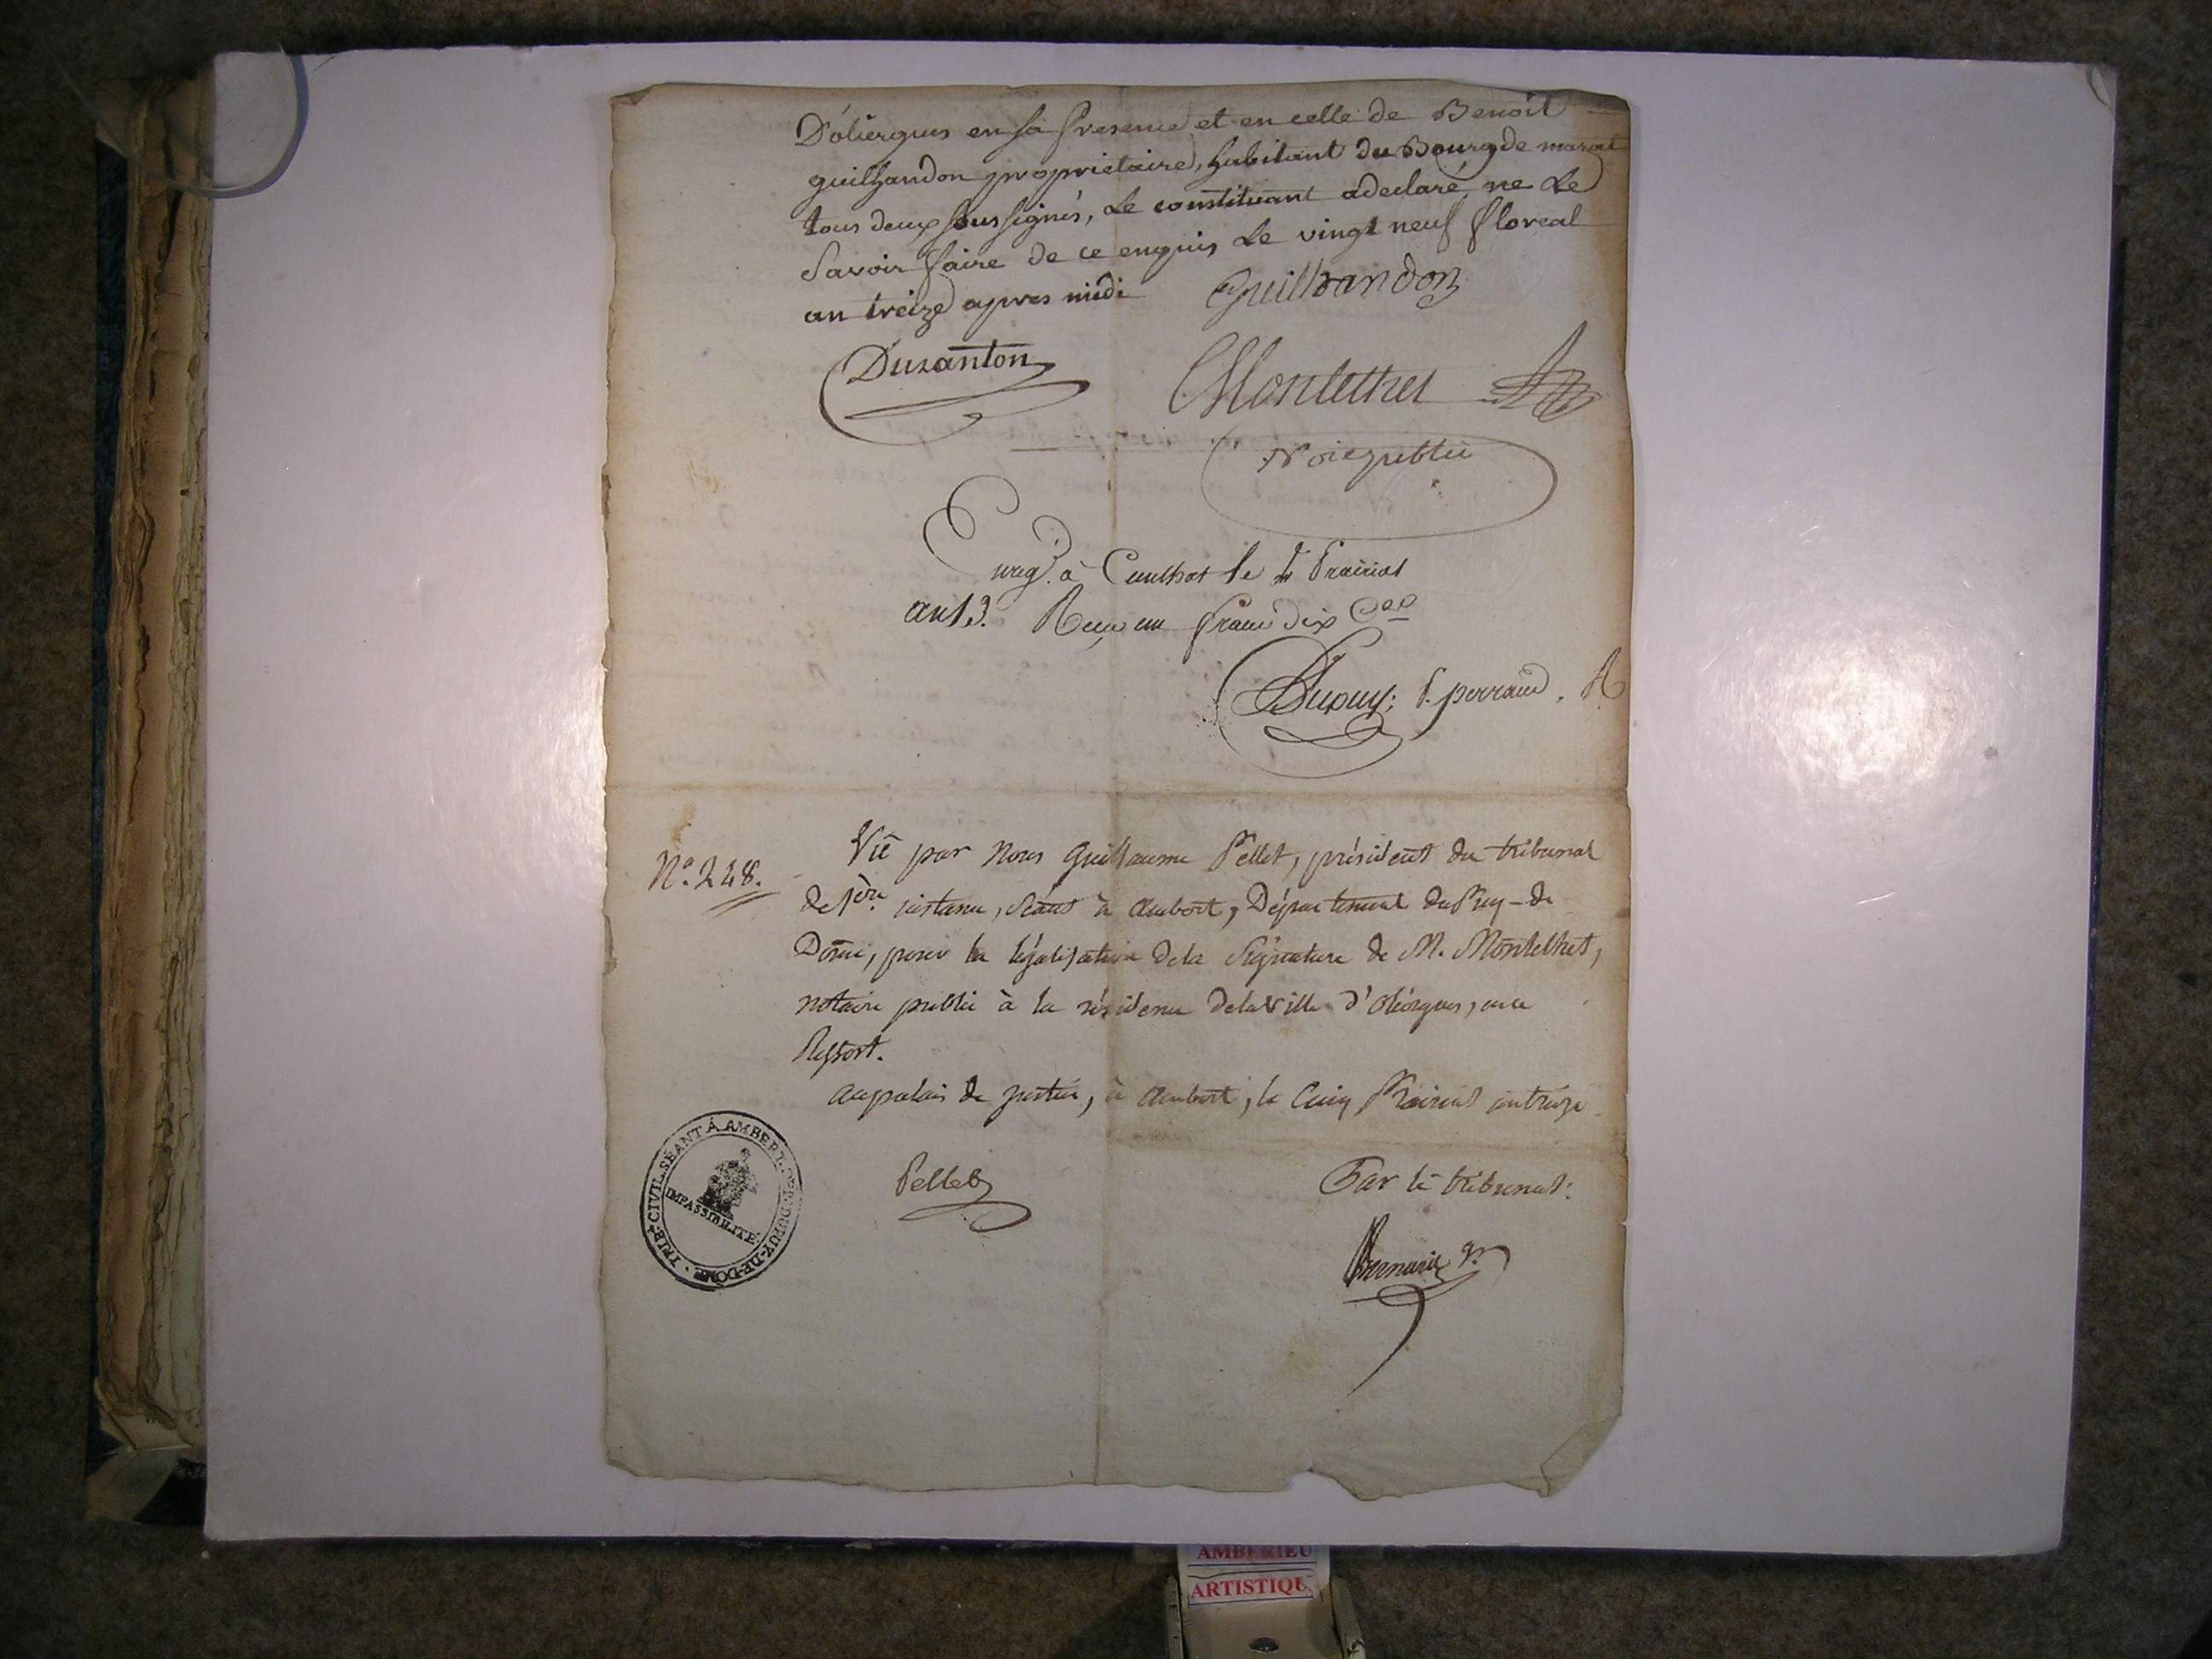 D'oliergues en sa presence et en celle de Benoit
guilhandon proprietaire, habitant du Bourg de marat
tous deux soussignés, Le constituant a declaré ne Le
Savoir faire de ce enquis Le vingt neuf floreal
an treize apres midi
Guilhandon
Duranton
Montelhet
Noire public
Enreg. à Cunlhat le 4 Prairial
an 13. Reçu un franc dix Ces
Dupuy; P. perraud.
N.º 248.
Vû par Nous Guillaume Pellet, président du tribunal
de 1ère instance, séant à Ambert, Département du Puy-de-
Dome, pour la légalisation de la Signature de M. Montelhet,
notaire public à la résidence de la Ville d'Oliergues, en ce
Ressort.
au palais de justice, à Ambert, le Cinq Prairial an treize
TRIB. CIVIL SÉANT À AMBERT. DU PUY-DE-DÔME.
IMPASSIBILITÉ.
Pellet
Par le tribunal:
gr
AMBERIEU
ARTISTIQU